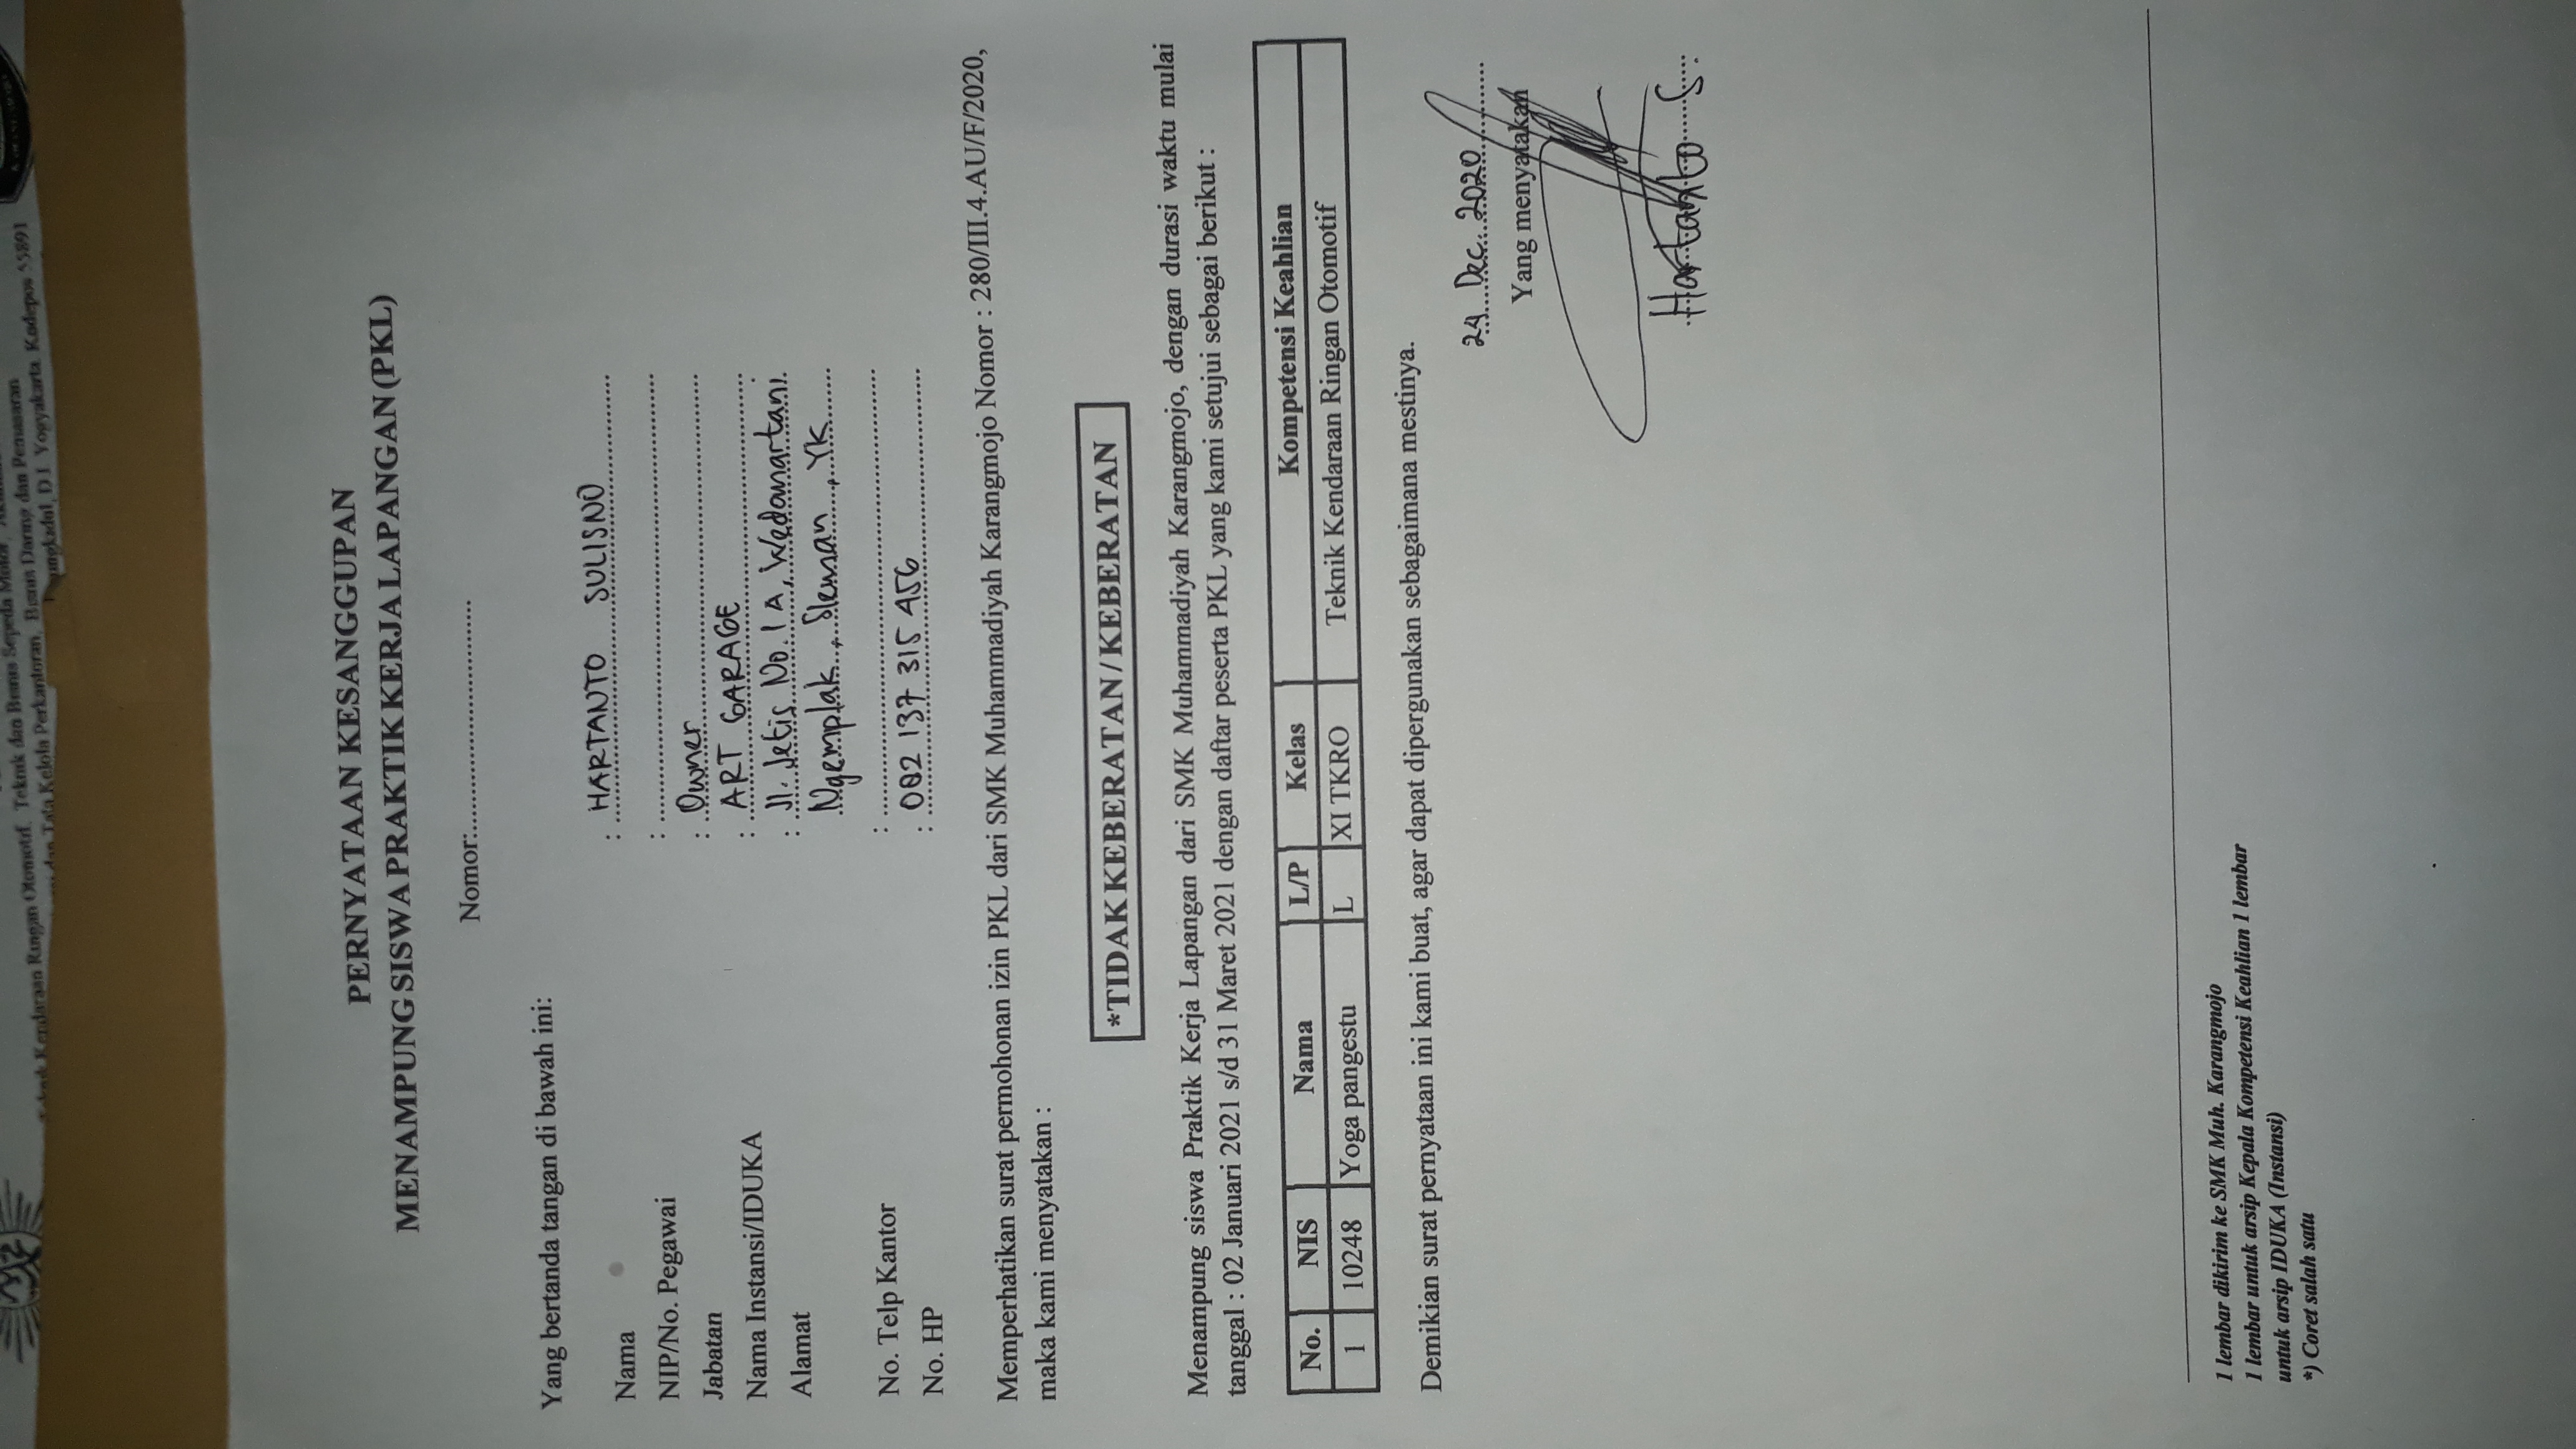 Teknik Kendaraan Ringan Otomotif, Teknik dan Bisnis Sepeda Motor,
dan Tata Kelola Perkantoran, Bisnis Daring dan Pemasaran
D.I. Yogyakarta. Kodepos 55891
PERNYATAAN KESANGGUPAN
MENAMPUNG SISWA PRAKTIK KERJA LAPANGAN (PKL)
Nomor:.................................
Yang bertanda tangan di bawah ini:
Nama : HARTANTO SULISNO
NIP/No. Pegawai :
Jabatan : Owner
Nama Instansi/IDUKA : ART GARAGE
Alamat : Jl. Jetis No. 1 A, Wedomartani
Ngemplak, Sleman, YK
No. Telp Kantor :
No. HP : 082 137 315 456
Memperhatikan surat permohonan izin PKL dari SMK Muhammadiyah Karangmojo Nomor : 280/III.4.AU/F/2020,
maka kami menyatakan :
*TIDAK KEBERATAN / KEBERATAN
Menampung siswa Praktik Kerja Lapangan dari SMK Muhammadiyah Karangmojo, dengan durasi waktu mulai
tanggal : 02 Januari 2021 s/d 31 Maret 2021 dengan daftar peserta PKL yang kami setujui sebagai berikut :
No. NIS Nama L/P Kelas Kompetensi Keahlian
1 10248 Yoga pangestu L XI TKRO Teknik Kendaraan Ringan Otomotif
Demikian surat pernyataan ini kami buat, agar dapat dipergunakan sebagaimana mestinya.
24 Dec. 2020
Yang menyatakan
Hartanto S.
1 lembar dikirim ke SMK Muh. Karangmojo
1 lembar untuk arsip Kepala Kompetensi Keahlian 1 lembar
untuk arsip IDUKA (Instansi)
*) Coret salah satu